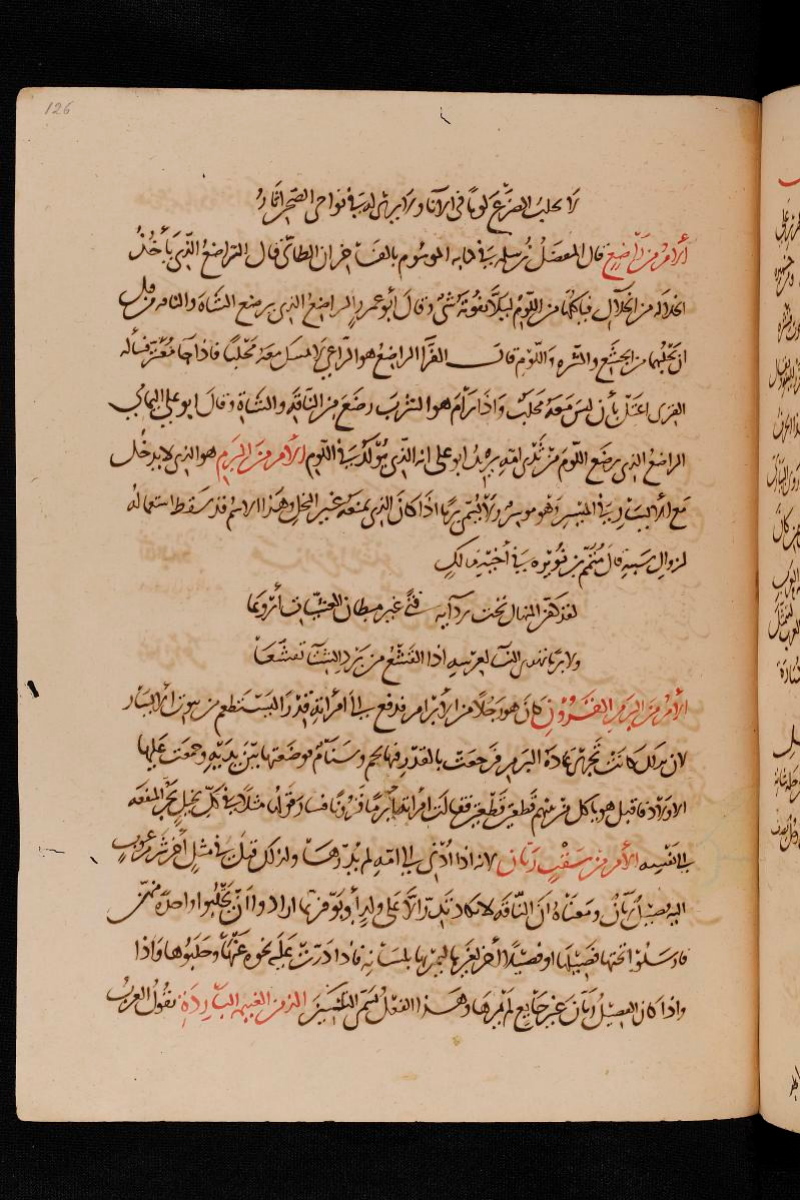 126
لا يحلب الضرع لوما في الاناء ولا يرى له في نواحي الصحن اثار
ألأم من راضع قال المفضل بن سلمة في كتابه الموسوم بالفاخر ان الطائي قال الراضع الذي يأخذ
الخلالة من الخلال فياكلها من اللؤم ليلا يفوته شي وقال أبو عمرو الراضع الذي يرضع الشاة والناقة من قبل
ان يحلبهما من الجشع والشره واللؤم قال الفرا الراضع هو الراعي لا يمسك معه محلبا فاذا جا معتر فسأله
القرى اعتل بأن ليس معه محلب واذا رام هو الشرب رضع من الناقة والشاة وقال ابو علي اليمامي
الراضع الذي يرضع اللؤم من ثدي امه يريد ابو علي انه الذي يولد في اللؤم ألأم من البرم هو الذي لا يدخل
مع الأيسار في الميسر وهو موسر ولا يسمى برما اذا كان الذي يمنعه غير البخل وهذا الاسم قد سقط استعماله
لزوال سببه قال متمم بن نويرة في أخيه مالك
لقد كفن المنهال تحت ردآيه فتى غير مبطان العشيات أروعا
ولا برما تهدي النسا لعرسه اذا القشع من برد الشتآ تقعقعا
ألأم من البرم القرون كان هو رجلا من الأبرام فدفع الى امرأته قدرا لتستطعم من بيوت الأيسار
لان بذلك كانت تجري عادة البرم فرجعت بالقدر فيها لحم وسنام فوضعتها بين يديه وجمعت عليها
الاولاد فاقبل هو ياكل من بينهم قطعتين قطعتين فقالت امرأته أبرما قرونا فسار قولها مثلا في كل بخيل يجر المنفعة
الى نفسه ألأم من سقب ريان لانه اذا ادني الى امه لم يدرها ولذلك قيل في مثل آخر شر مرغوب
اليه فصيل ريان ومعناه ان الناقة لا تكاد تدر الا على ولد أو بو فربما ارادوا ان يحتلبوا واحدة منهن
فارسلوا تحتها فصيلها او فصيلا آخر لغيرها ليمريها بلسانه فاذا درت عليه نحوه عنها وحلبوها واذا
واذا كان الفصيل ريان غير جايع لم يمرها وهذا الفعل يسمى التلسين ألذ من الغنيمة الباردة تقول العرب